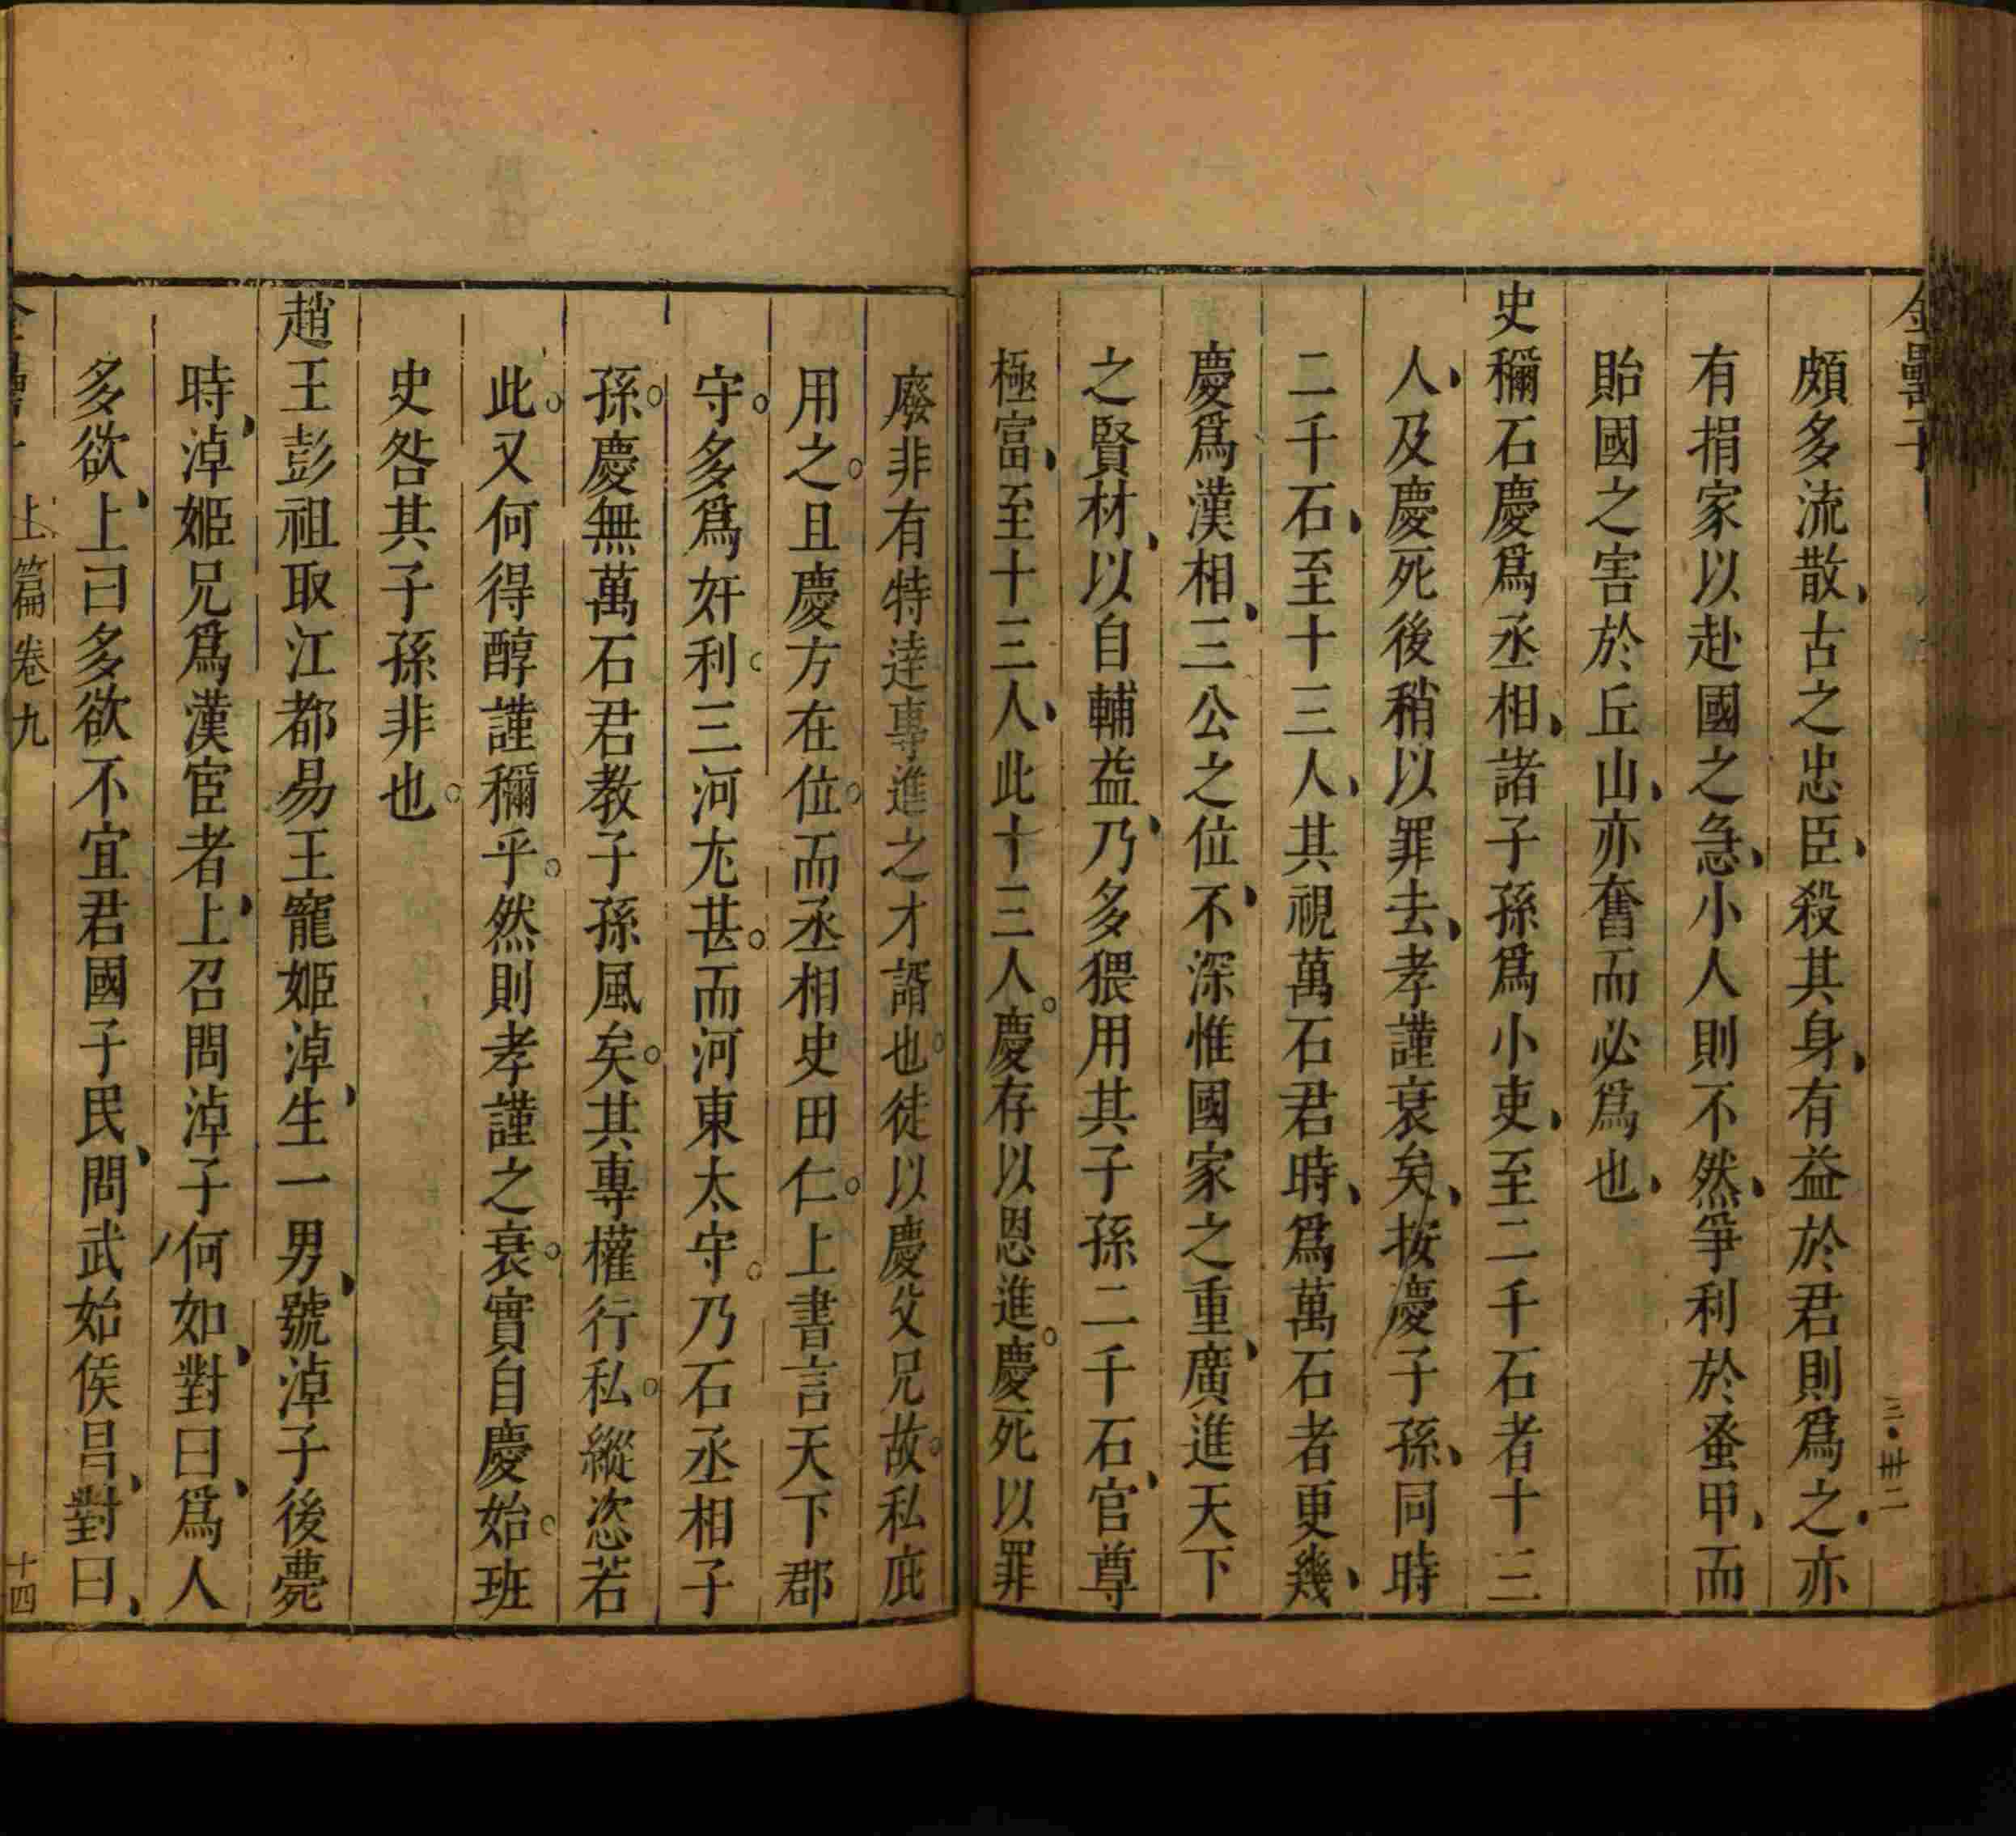 金罍子
三·卅二
頗多流散、古之忠臣、殺其身、有益於君則爲之、亦
有捐家以赴國之急、小人則不然、爭利於蚤甲、而
貽國之害於丘山、亦奮而必爲也、
史稱石慶爲丞相、諸子孫爲小吏、至二千石者十三
人、及慶死後稍以罪去、孝謹衰矣、按慶子孫、同時
二千石、至十三人、其視萬石君時、爲萬石者更幾、
慶爲漢相、三公之位、不深惟國家之重、廣進天下
之賢材、以自輔益、乃多猥用其子孫二千石、官尊
極富、至十三人、此十三人。慶存以恩進。慶死以罪
廢非有特達專進之才諝也。徒以慶父兄故。私庇
用之。且慶方在位。而丞相史田仁。上書言天下郡
守。多爲奸利。三河尤甚。而河東太守。乃石丞相子
孫。慶無萬石君教子孫風矣。其專權行私。縱恣若
此。又何得醇謹稱乎。然則孝謹之衰。實自慶始。班
史咎其子孫非也。
趙王彭祖取江都易王寵姬淖、生一男、號淖子後薨
時、淖姬兄爲漢宦者、上召問淖子何如、對曰、爲人
多欲、上曰多欲不宜君國子民、問武始侯昌、對曰、
上篇卷九
十四